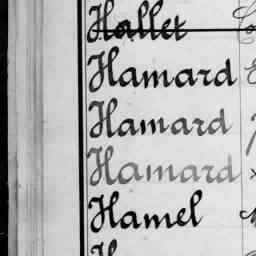 Hallet
Hamard
Hamard
Hamard
Hamel